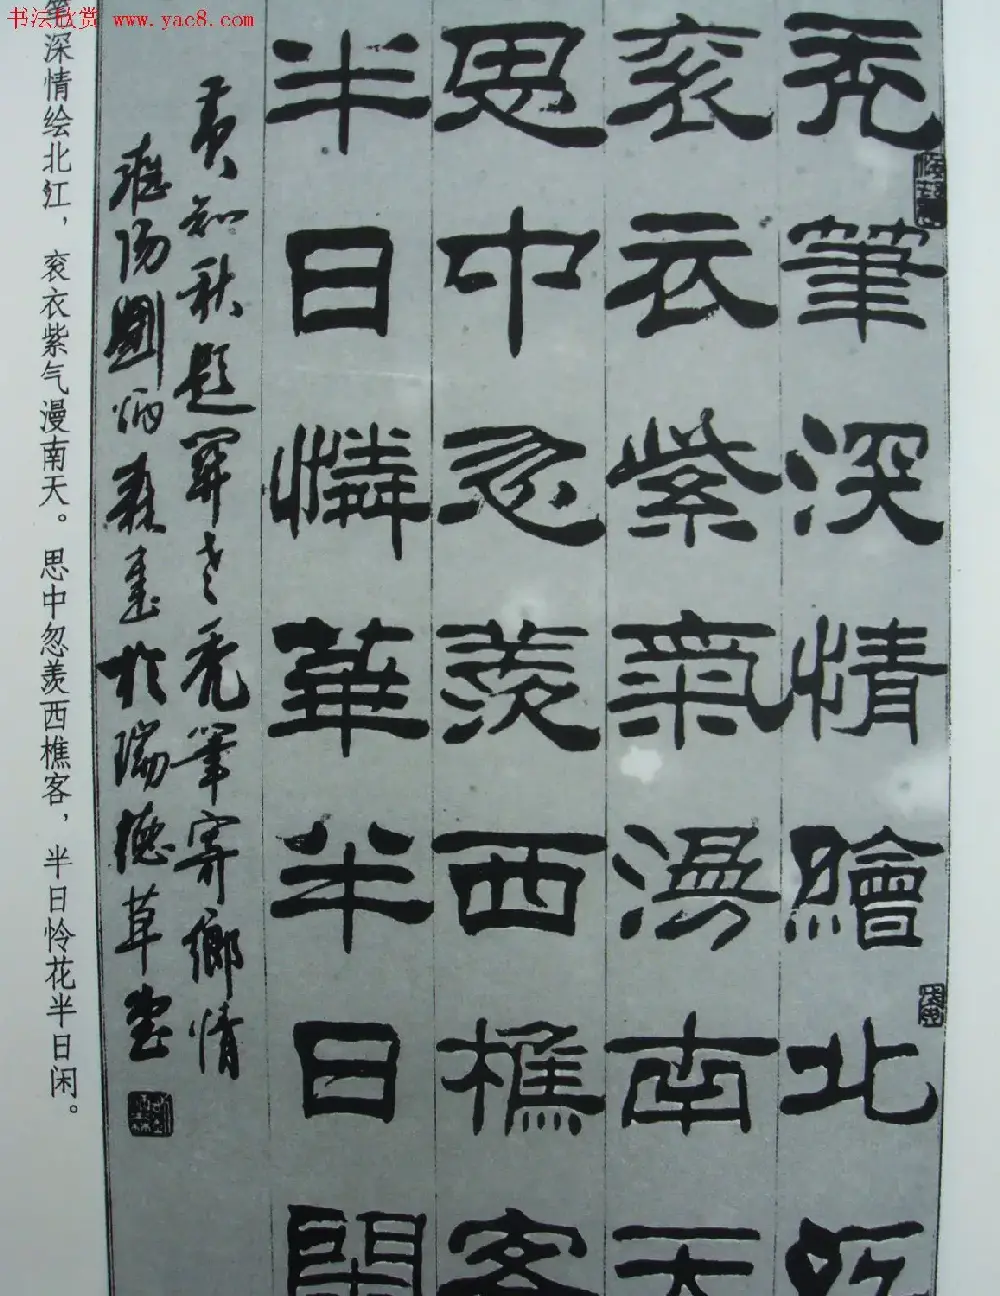 书法欣赏 www.yac8.com
秃筆深情繪北江
衮衣紫氣漫南天
思中忽羨西樵客
半日憐華半日閑
黄知秋題關老秃筆寄鄉情
淮陽劉炳森書於瑞德草堂
笔深情绘北江，衮衣紫气漫南天。思中忽羡西樵客，半日怜花半日闲。